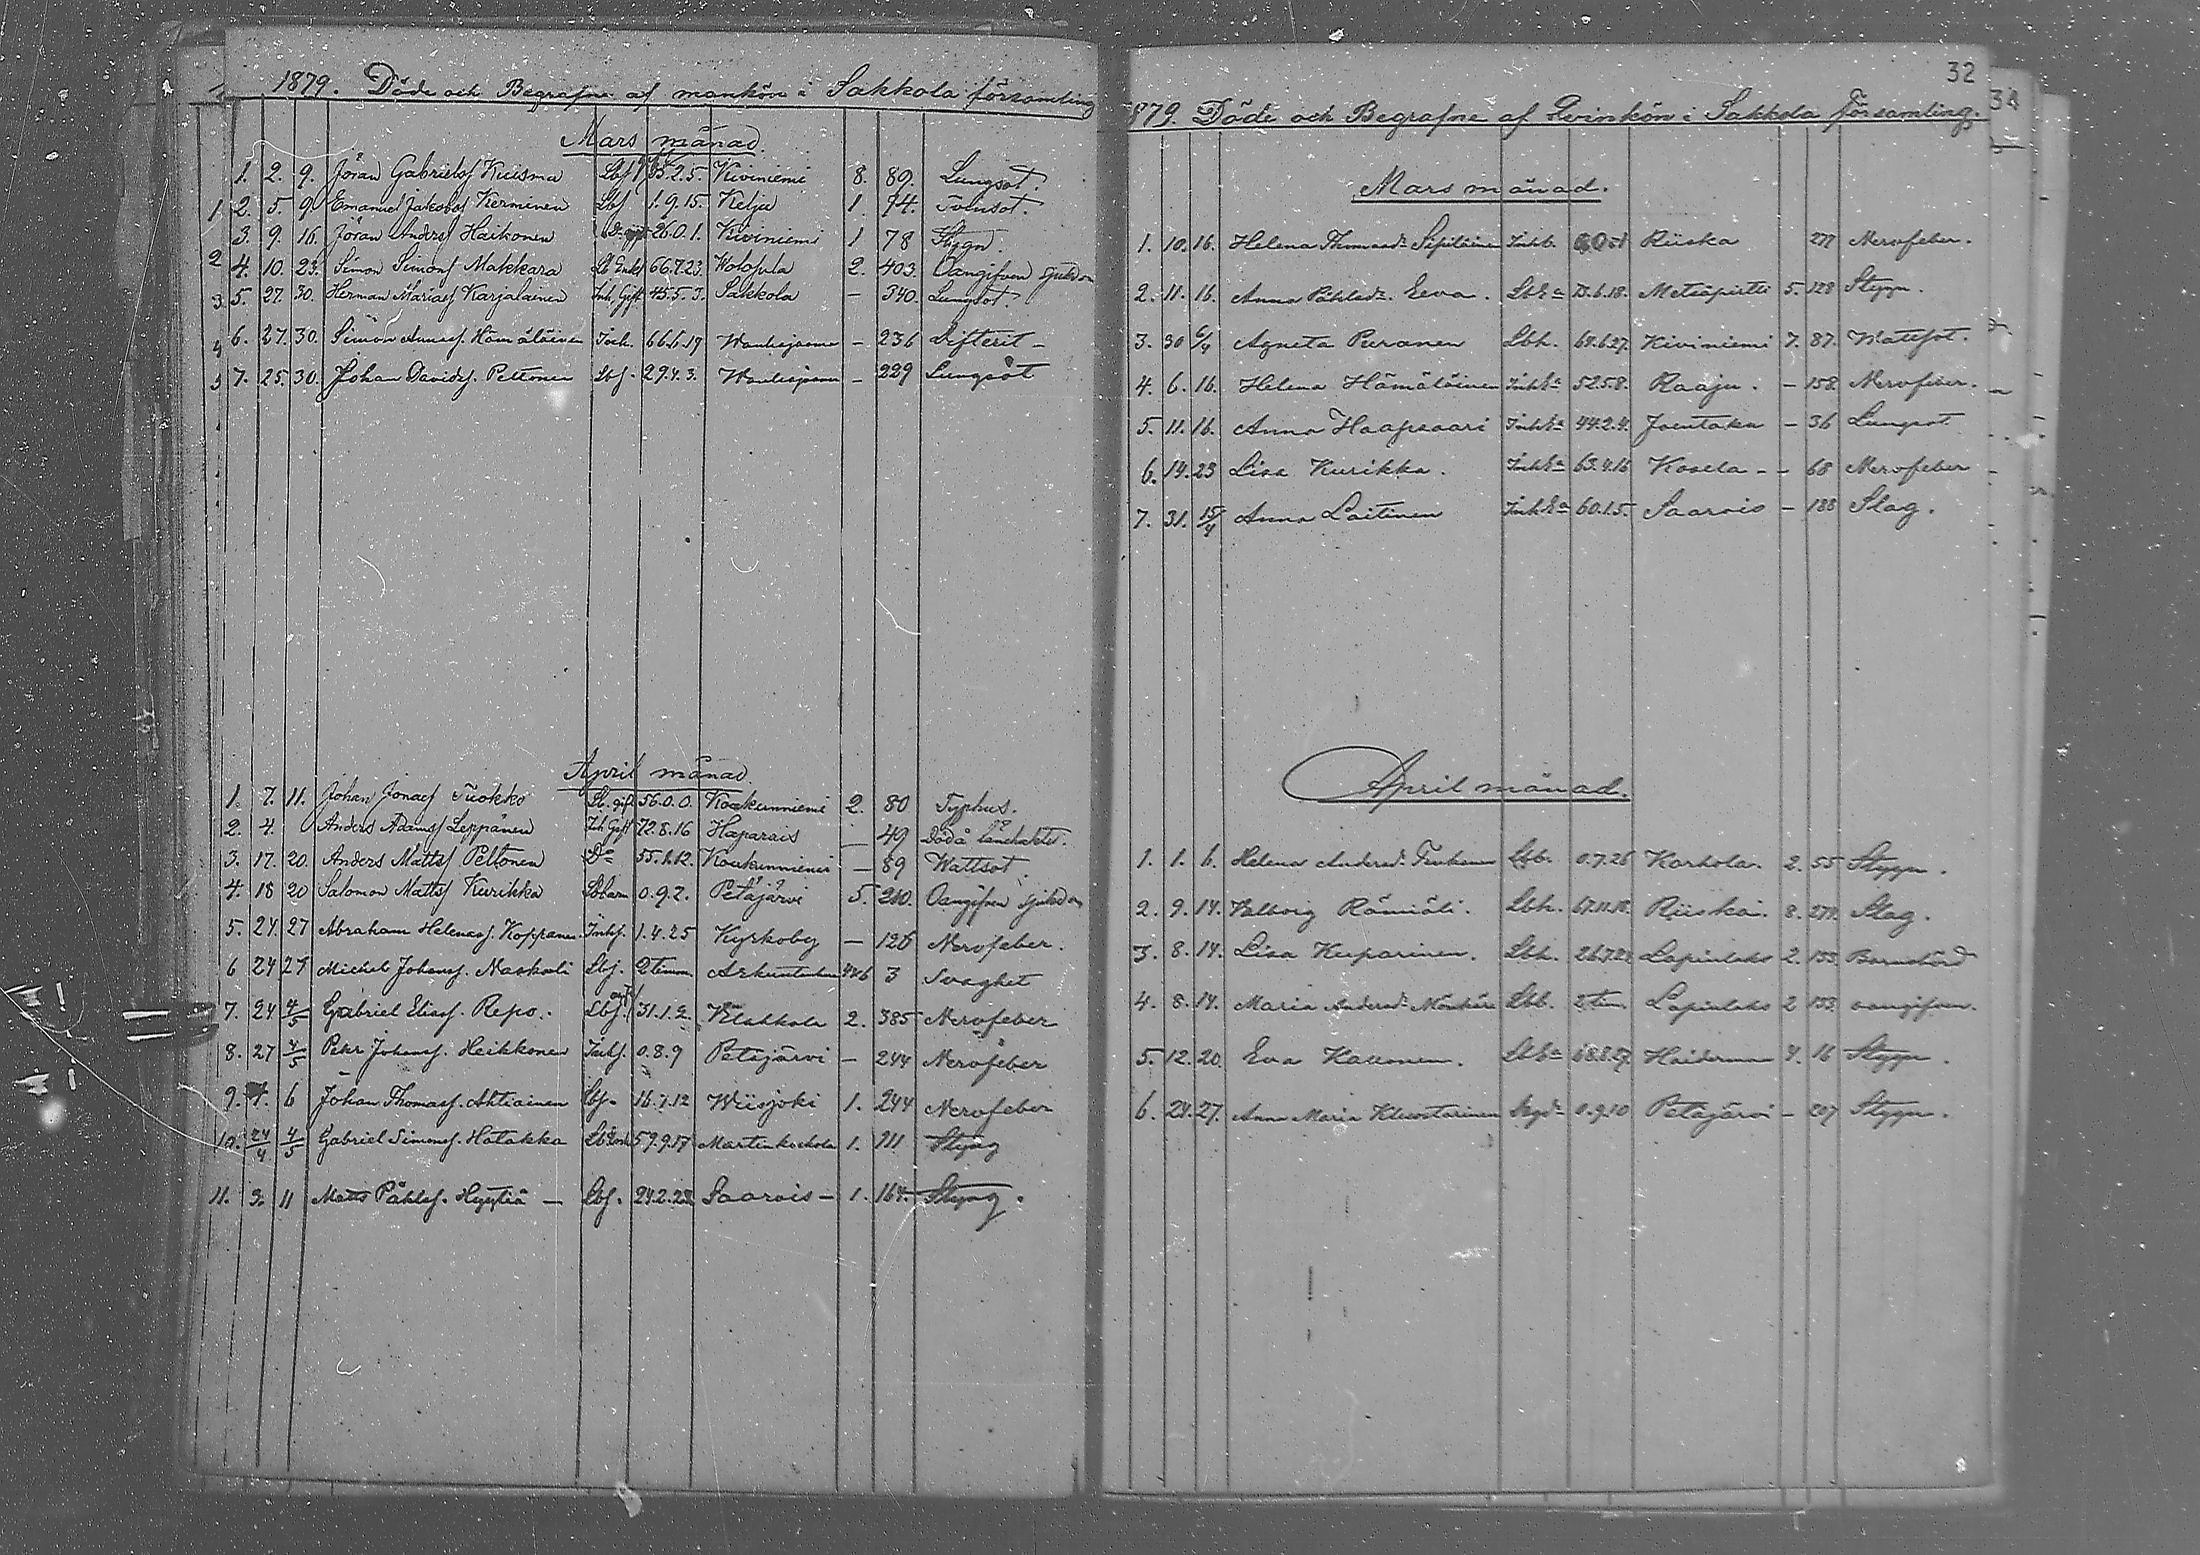 1879. Döde och Begrafne af mankön i Sakkola församling
Mars månad.
1. 2. 9. Jöran Gabrielsf Kuisma Lbf 2.5. Kiviniemi 8. 89. Lungsot.
1 2. 5. 9. Emanuel Jakobsf Kerminen Lbf 1.9.15. Kelja 1. 74. Tvinsot.
3. 9. 16. Jöran Andersf Haikonen 26.0.1. Kiviniemi 1 78 Stygn.
2 4. 10. 23. Simon Simonsf Makkara Lb Enkl 66.7.23. 2. 403. Oangifven sjukdom
3 5. 27. 30. Herman Mariasf Karjalainen Inh. Gift 45.5.3. Sakkola – 340. Lungsot.
4 6. 27. 30. Simon Annasf. Hämäläinen Inh. 66.6.19 – 236 Difterit –
5 7. 25. 30. Johan Davidsf. Peltonen Lbf. 29.4.3. – 229 Lungsot
April månad.
1. 7. 11. Johan Jonaef Tuokko Lb. gift 56.0.0. Koukunniemi 2. 80 Typhus.
2. 4. Anders Adamsf Leppänen Inh Gift 72.8.16 Haparais – 49
3. 17. 20. Anders Mattsf Peltonen Do 55.1.12. Koukunniemi – 89 Wattsot.
4. 18 20 Salomon Mattsf Kurikka Lbbarn 0.9.2. Petäjärvi 5. 210. Oangifven sjukdom
5. 24. 27 Abraham Helenasf. Koppanen Inhf. 1.4.25 Kyrkoby – 126 Nervfeber.
6 24 27 Michel Johansf. Naskali Lbf. 2 timm. 446 3 Svaghet
7. 24 4/5 Gabriel Eliasf. Repo. Lbf. gift 31.1.2. 2. 385 Nervfeber
8. 27 4/5 Petr Johansf. Heikkonen Inhf. 0.8.9 Petäjärvi – 244 Nervfeber
9. 4. 6 Johan Thomasf. Ahtiainen Lbf. 16.7.12 Wiisjoki 1. 244 Nervfeber
10. 24/4 4/5 Gabriel Simonsf. Hatakka 59.9.17 Martinkochola 1. 111 Styng
11. 3. 11 Matts Påhlsf. Hyytiä – Lbf. 24.2.28 Saarois – 1. 164. Styng.
32
1879. Döde och Begrafne af Qvinkön i Sakkola Församling.
Mars månad.
1. 10. 16. Helena Thomasd. Inhb. Riiska 277 Nervfeber.
2. 11. 16. Anna Påhlsd. Eeva. Metsäpirtti 5. 128 Stygn.
3. 30 6/4 Agneta Puranen Lbh. 64.6.27. Kiviniemi 7. 87. Wattsot.
4. 6. 16. Helena Hämäläinen 52.5.8. Raaju. – 158. Nervfeber.
5. 11. 16. Anna Haapsaari 44.2.4. Joentaka – 36 Lungsot
6. 14. 23 Lisa Kurikka. 63.4.16 Kosela – – 68 Nervfeber
7. 31. 15/4 Anna Laitinen 60.1.5. Saarois – 188 Slag.
April månad.
1. 1. 6. Helena Andersd. Lbb. 0.7.26 Karhola. 2. 55 Stygn.
2. 9. 14. Valborg Rämiäli. Lbh. 67.11.18. Riiska. 8. 279. Slag.
3. 8. 14. Lisa Kuparinen. Lbh. 26.7.27 Lapinlaks 2. 153. Barnsbörd
4. 8. 14. Maria Andersd. Lbb. 2 tim. Lapinlaks 2 153. oangifven.
5. 12. 20. Eva Kakkonen. Haiderman 4. 16 Stygn.
6. 24. 27. Anna Maria 0.9.10 Petäjärvi – 207 Stygn.